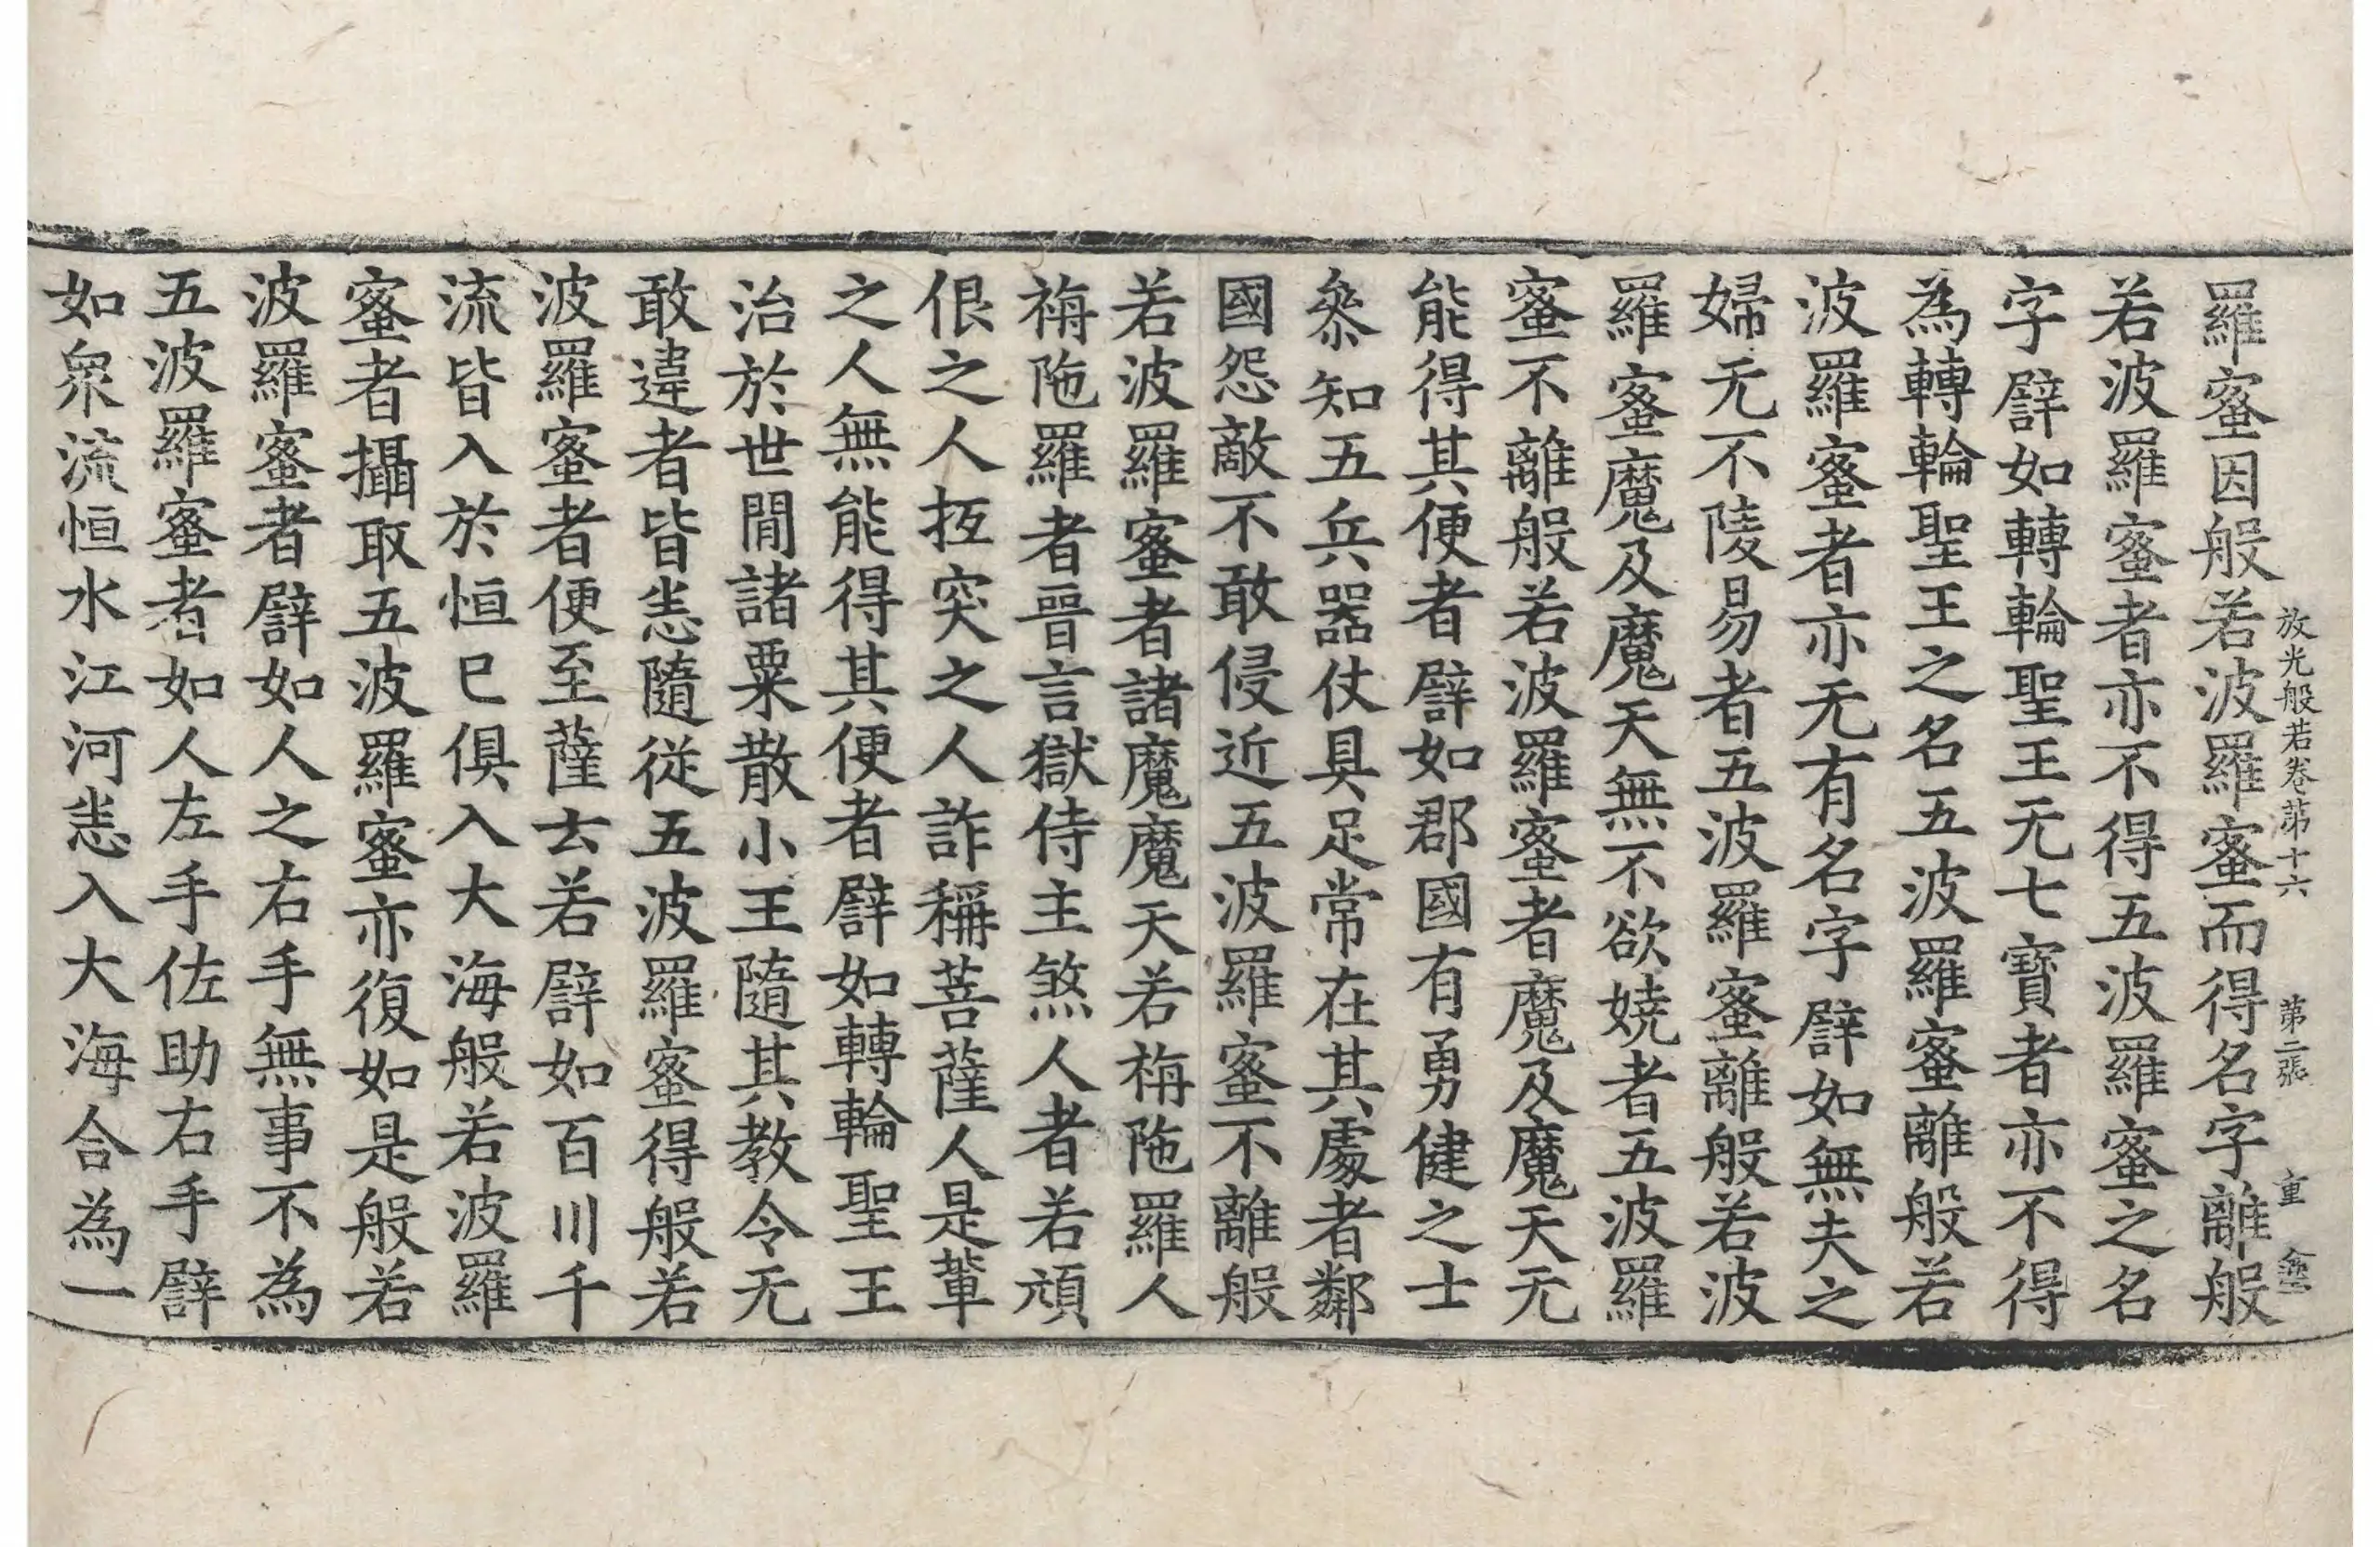 放光般若卷第十六　第二張　重
羅蜜因般若波羅蜜而得名字離般
若波羅蜜者亦不得五波羅蜜之名
字譬如轉輪聖王无七寶者亦不得
為轉輪聖王之名五波羅蜜離般若
波羅蜜者亦无有名字譬如無夫之
婦无不陵易者五波羅蜜離般若波
羅蜜魔及魔天無不欲嬈者五波羅
蜜不離般若波羅蜜者魔及魔天无
能得其便者譬如郡國有勇健之士
叅知五兵器仗具足常在其處者鄰
國怨敵不敢侵近五波羅蜜不離般
若波羅蜜者諸魔魔天若栴陁羅人
栴陁羅者晉言獄侍主煞人者若頑
佷之人抂突之人詐稱菩薩人是輩
之人無能得其便者譬如轉輪聖王
治於世閒諸粟散小王隨其教令无
敢違者皆恙隨從五波羅蜜得般若
波羅蜜者便至薩云若譬如百川千
流皆入於恒巳俱入大海般若波羅
蜜者攝取五波羅蜜亦復如是般若
波羅蜜者譬如人之右手無事不為
五波羅蜜者如人左手佐助右手譬
如眾流恒水江河恙入大海合為一